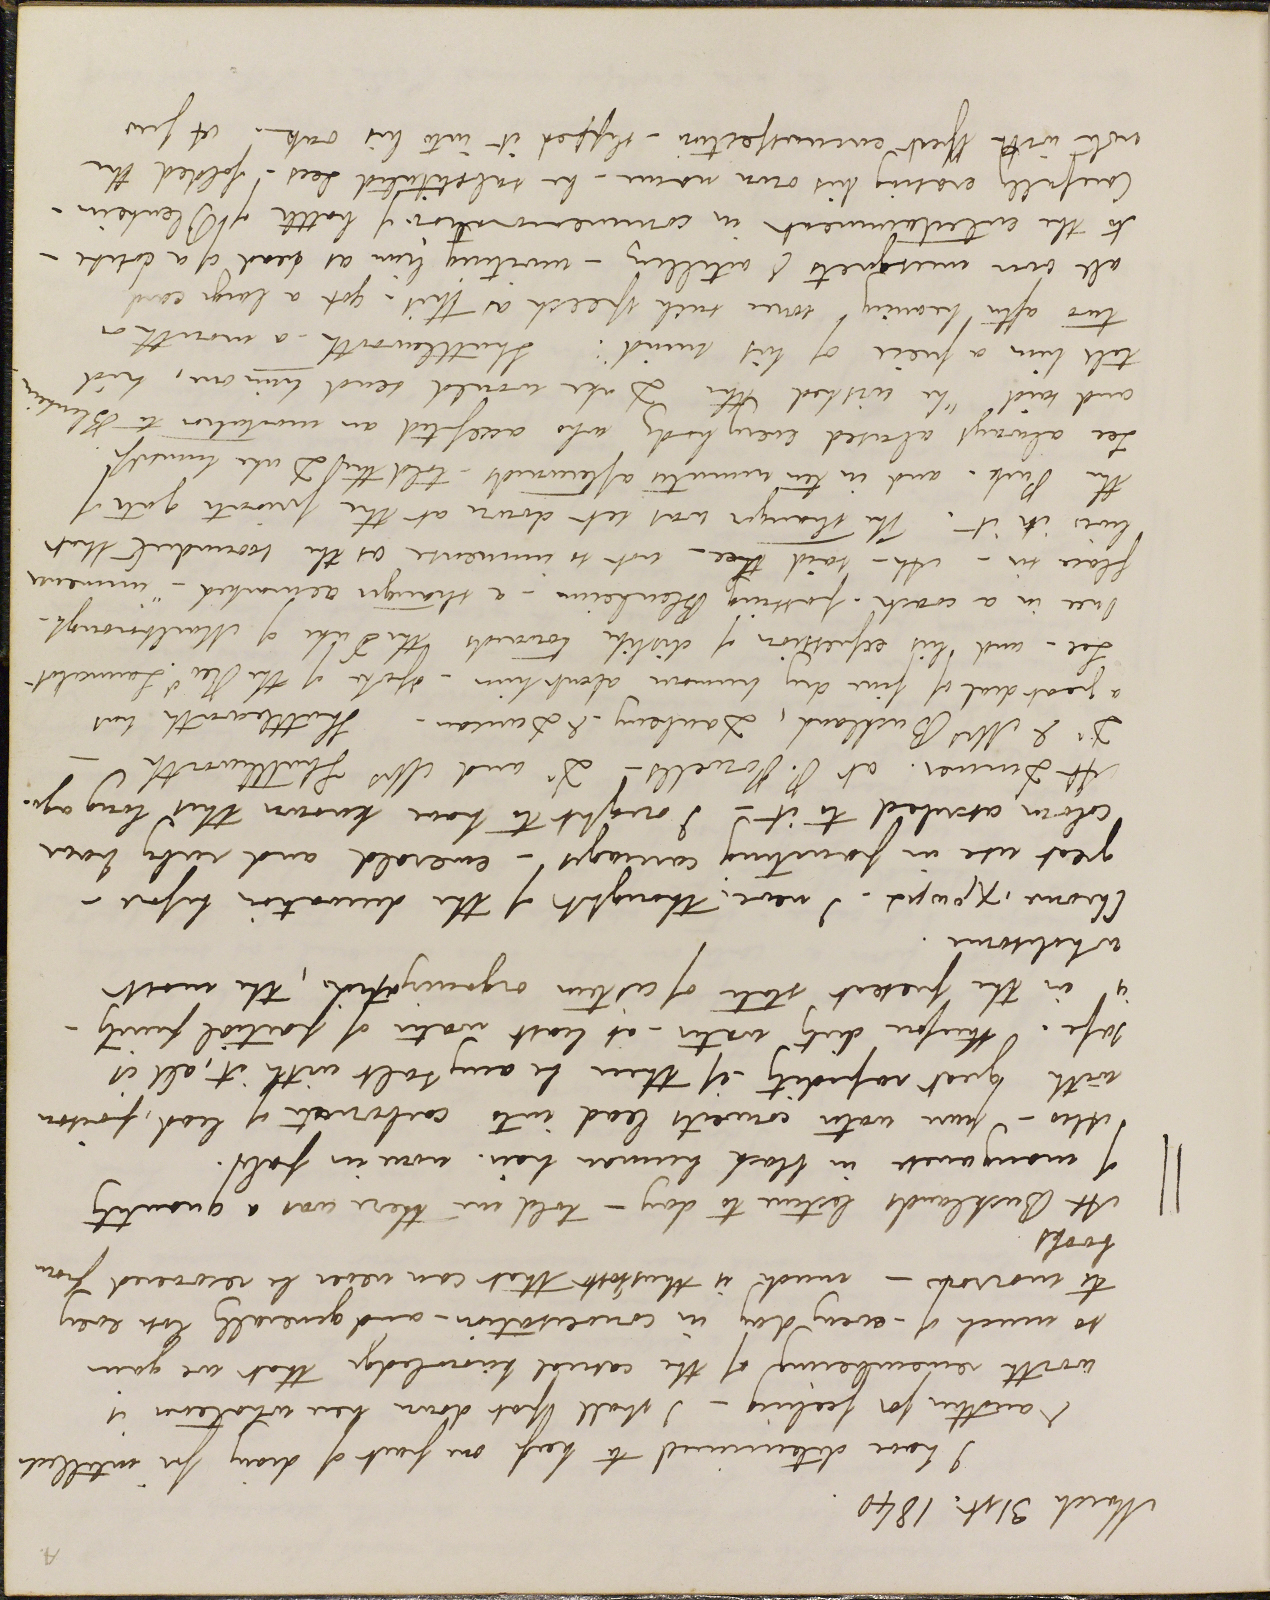 A.
March 31st. 1840.
I have determined to keep one part of diary for intellect
& another for feeling - I shall put down here whatever is
worth remembering of the casual knowledge that we gain
so much of - every day in conversation - and generally lose every
to morrow - much is thus lost that can never be recovered from
books
At Bucklands lecture to day - told me there was a quantity
of manganese in black human hair. none in pale.
Also - pure water converts lead into carbonate of lead, poison
with great rapidity - if there be any salt with it, all is
safe. therefore dirty water - at least water of partial purity -
is in the present state of cistern organization, the most
wholesome.
Chrome, χρωμα - I never thought of the derivation before -
great use in painting carriages - emerald and ruby have
colour ascribed to it - I ought to have known this long ago.
At Dinner. at P. Powells - Dr and Mrs Shuttleworth -
Dr & Mrs Buckland, Daubeny - & Duncan - Shuttleworth has
a great deal of fine dry humour about him - spoke of the Revd. Launcelot
Lee - and his expression of dislike towards the Duke of Marlborough -
Once in a coach - passing Blenheim - a stranger remarked - "immense
place sir - Ah - said Lee - not so immense as the scoundrel that
lives in it. The stranger was set down at the private gate of
the Park - and in ten minutes afterwards - told the Duke himself.
Lee always abused every body who accepted an invitation to Blenheim -
and said "he wished the Duke would send him one, he'd
tell him a piece of his mind". Shuttleworth - a month or
two after hearing some such speech as this - got a large card
all over musquets & artillery - inviting him as head of a college -
to the entertainment in commemoration of battle of Blenheim -
Carefully erasing his own name - he substituted Lees - folded the
note with great circumspection - slipped it into his oak. A few